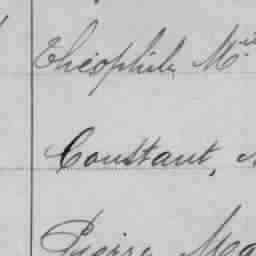 Théophile Mie
Constant,
Pierre Ma